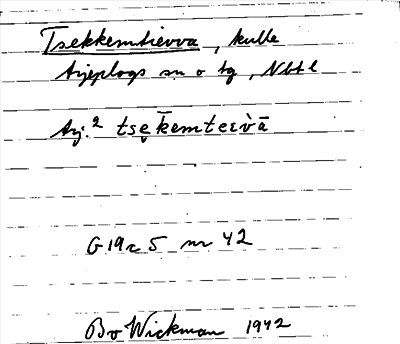 Tsekkemtievva, kulle
Arjeplogs sn o tg, Nbtl
Arj.² tsękemteɛ̀vā
G19a 5 nr 42
Bo Wickman 1942